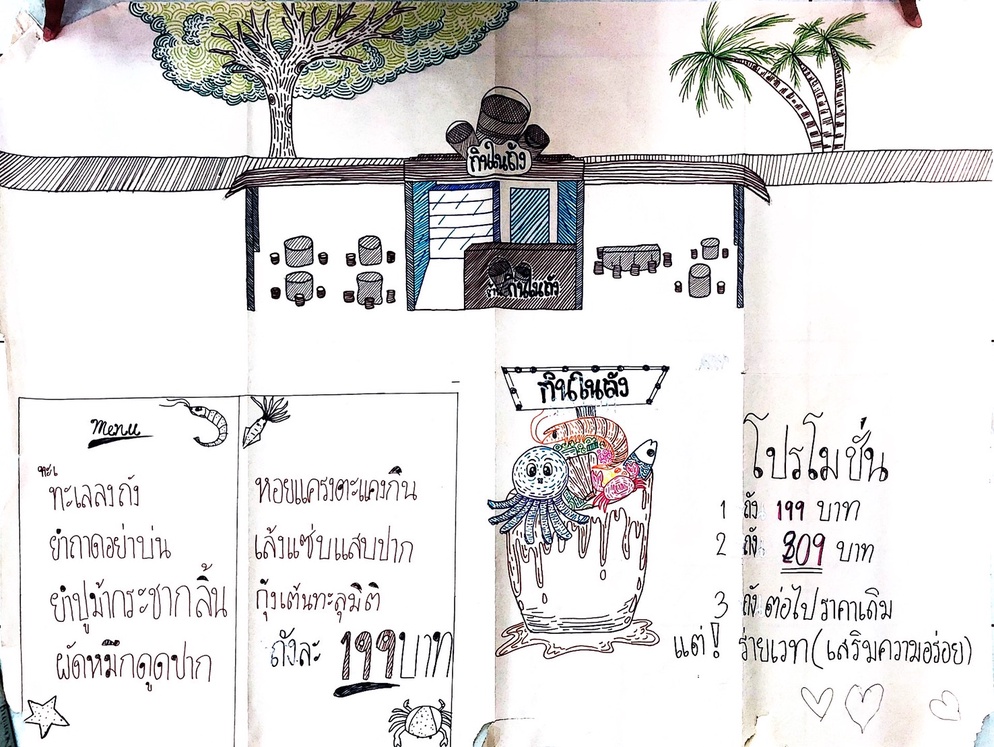 กินในถัง
ร้านกินในถัง
กินในถัง
Menu
ทะเ
ทะเลลงถัง
ยำถาดอย่าบ่น
ยำปูม้ากระชากลิ้น
ผัดหมึกดูดปาก
หอยแครงตะแคงกิน
เล้งแซ่บแสบปาก
กุ้งเต้นทะลุมิติ
ถังละ 199 บาท
โปรโมชั่น
1 ถัง 199 บาท
2 ถัง 309 บาท
3 ถัง ต่อไปราคาเดิม
แต่! ร่ายเวท (เสริมความอร่อย)